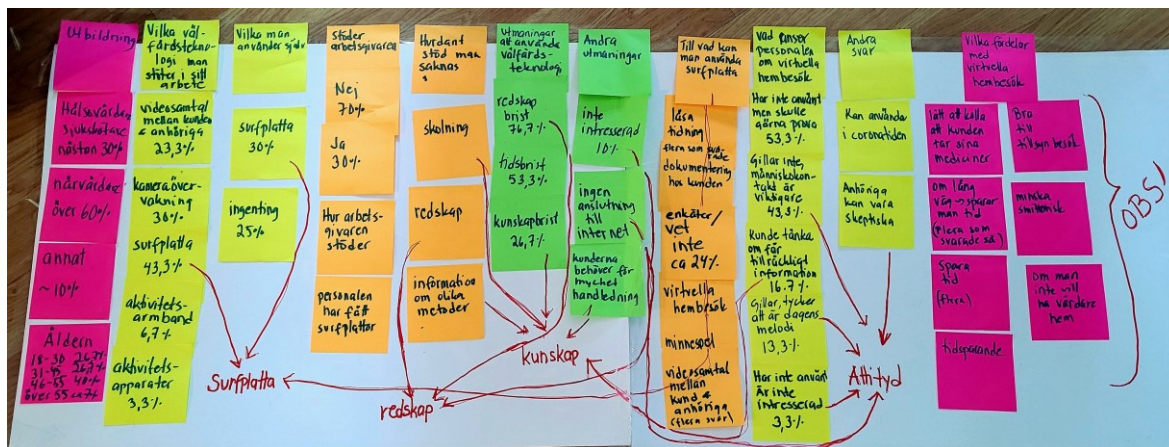 Utbildning
Hälsovårdare
sjukskötare
nästan 30%
närvårdare
över 60%
annat
~10%
Åldern
18-30 26,7%
31-45 26,7%
46-55 40%
över 55 ca 7%
Vilka väl-
färdstekno-
logi man
stöter i sitt
arbete
videosamtal
mellan kunden
& anhöriga
23,3%
kameraöver-
vakning
30%
surfplatta
43,3%
aktivitets-
armband
6,7%
aktivitets-
apparater
3,3%
Vilka man
använder själv
surfplatta
30%
ingenting
25%
Surfplatta
Stöder
arbetsgivaren
Nej
70%
Ja
30%
Hur arbets-
givaren
stöder
personalen
har fått
surfplattor
Hurdant
stöd man
saknas
skolning
redskap
information
om olika
metoder
redskap
Utmaningar
att använda
välfärds-
teknologi
redskap
brist
76,7%
tidsbrist
53,3%
kunskapbrist
26,7%
kunskap
Andra
utmaningar
inte
intresserad
10%
ingen
anslutning
till
internet
kunderna
behöver för
mycket
handledning
Till vad kan
man använda
surfplatta
läsa
tidning
flera som
dokumentering
hos kunden
enkäter/
vet
inte
ca 24%
virtuella
hembesök
minnespel
videosamtal
mellan
kund &
anhöriga
(flera svar)
Vad anser
personalen
om virtuella
hembesök
Har inte använt
men skulle
gärna prova
53,3%
Gillar inte,
människokon-
takt är
viktigare
43,3%
Kunde tänka
om får
tillräckligt
information
16.7%
Gillar, tycker
att är dagens
melodi
13,3%
Har inte använt
Är inte
intresserad
3,3%
Andra
svar
Kan använda
i coronatiden
Anhöriga
kan vara
skeptiska
Attityd
Vilka fördelar
med
virtuella
hembesök
lätt att kolla
att kunden
tar sina
mediciner
om lång
väg -> sparar
man tid
(flera som
svarade så)
Spara
tid
(flera)
tidsparande
Bra
till
tillsyn besök
minska
smittorisk
om man
inte vill
ha vårdare
hem
OBS!